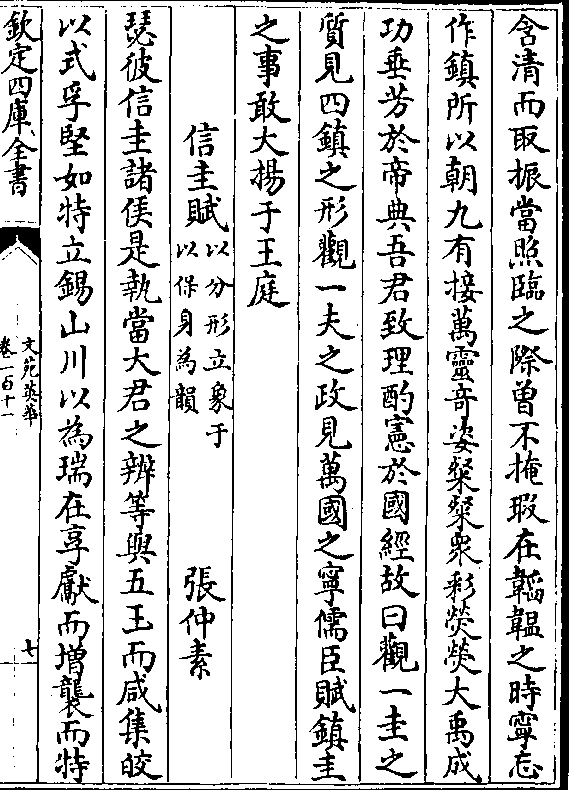 含清而取振當照臨之際曾不掩瑕在韜韞之時寧忘
作鎮所以朝九有接萬靈奇姿粲粲衆彩熒熒大禹成
功垂芳於帝典吾君致理酌憲於國經故曰觀一圭之
質見四鎮之形觀一夫之政見萬國之寧儒臣賦鎮圭
之事敢大揚于王庭
信圭賦以分形立象于以保身為韻 張仲素
瑟彼信圭諸侯是執當大君之辨等與五玉而咸集皎
以式孚堅如特立錫山川以為瑞在享獻而增襲而特
欽定四庫全書
文苑英華
卷一百十一
七